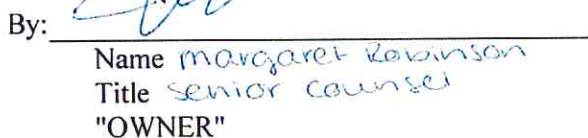 By:
Name Margaret Robinson
Title Senior Counsel
"OWNER"